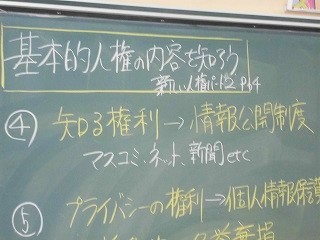 基本的人権の内容を知ろう
新しい人権 P64
④ 知る権利→情報公開制度
マスコミ、ネット、新聞etc
⑤ プライバシーの権利→個人情報保護